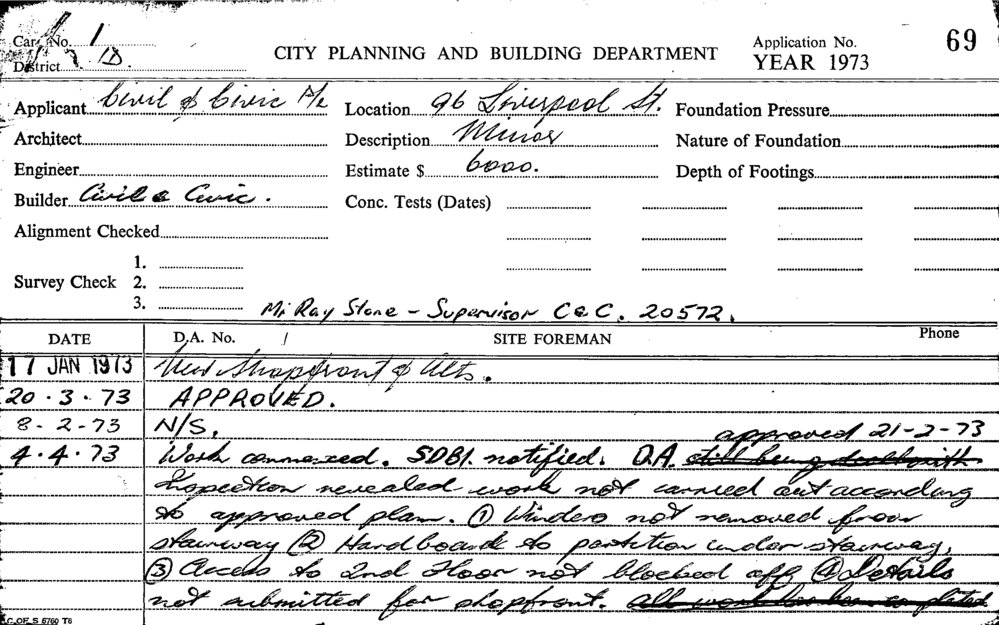 Card No. 1
District D.
CITY PLANNING AND BUILDING DEPARTMENT
Application No. 69
YEAR 1973
Applicant Civil & Civic P/L Location 96 Liverpool St. Foundation Pressure
Architect Description Minor Nature of Foundation
Engineer Estimate $ 6000. Depth of Footings
Builder Civil & Civic. Conc. Tests (Dates)
Alignment Checked
1.
Survey Check 2.
3.
Mr Ray Stone - Supervisor C & C. 20572.
DATE D.A. No. / SITE FOREMAN Phone
17 JAN 1973 New Shopfront & Alts.
20.3.73 APPROVED.
8-2-73 N/S. approved 21-2-73
4.4.73 Work commenced. SDBI. notified. D.A. still being dealt with
Inspection revealed work not carried out according
to approved plan. ① Winders not removed from
stairway ② Hardboard to partition under stairway,
③ Access to 2nd Floor not blocked off ④ Details
not submitted for shopfront. All work has been completed.
C. OF S. 6760 T6